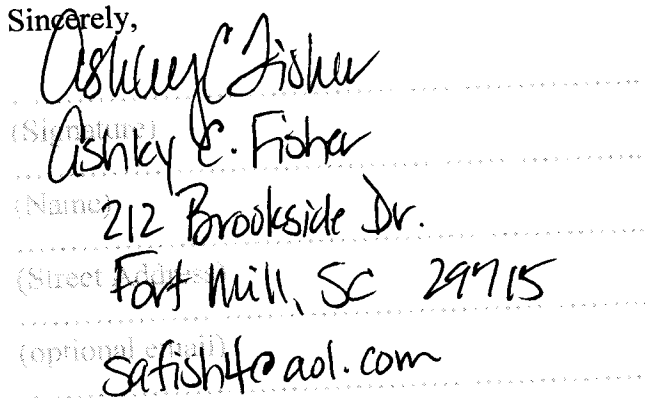 Sincerely,
Ashley C Fisher
(Signature)
Ashley C. Fisher
(Name)
212 Brookside Dr.
(Street Address)
Fort Mill, SC 29715
(optional email)
satish4@aol.com